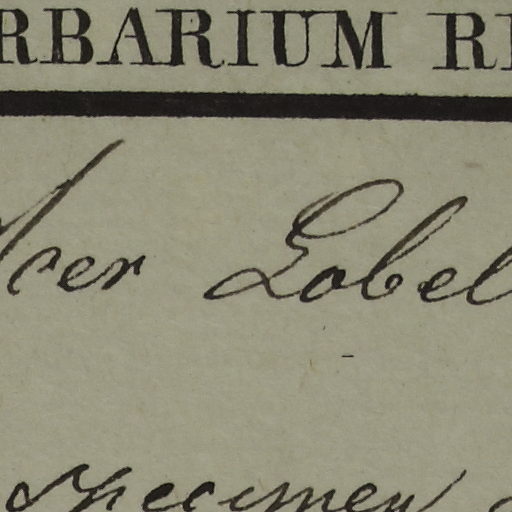 RBARIUM R
Acer Lobel
Specimen